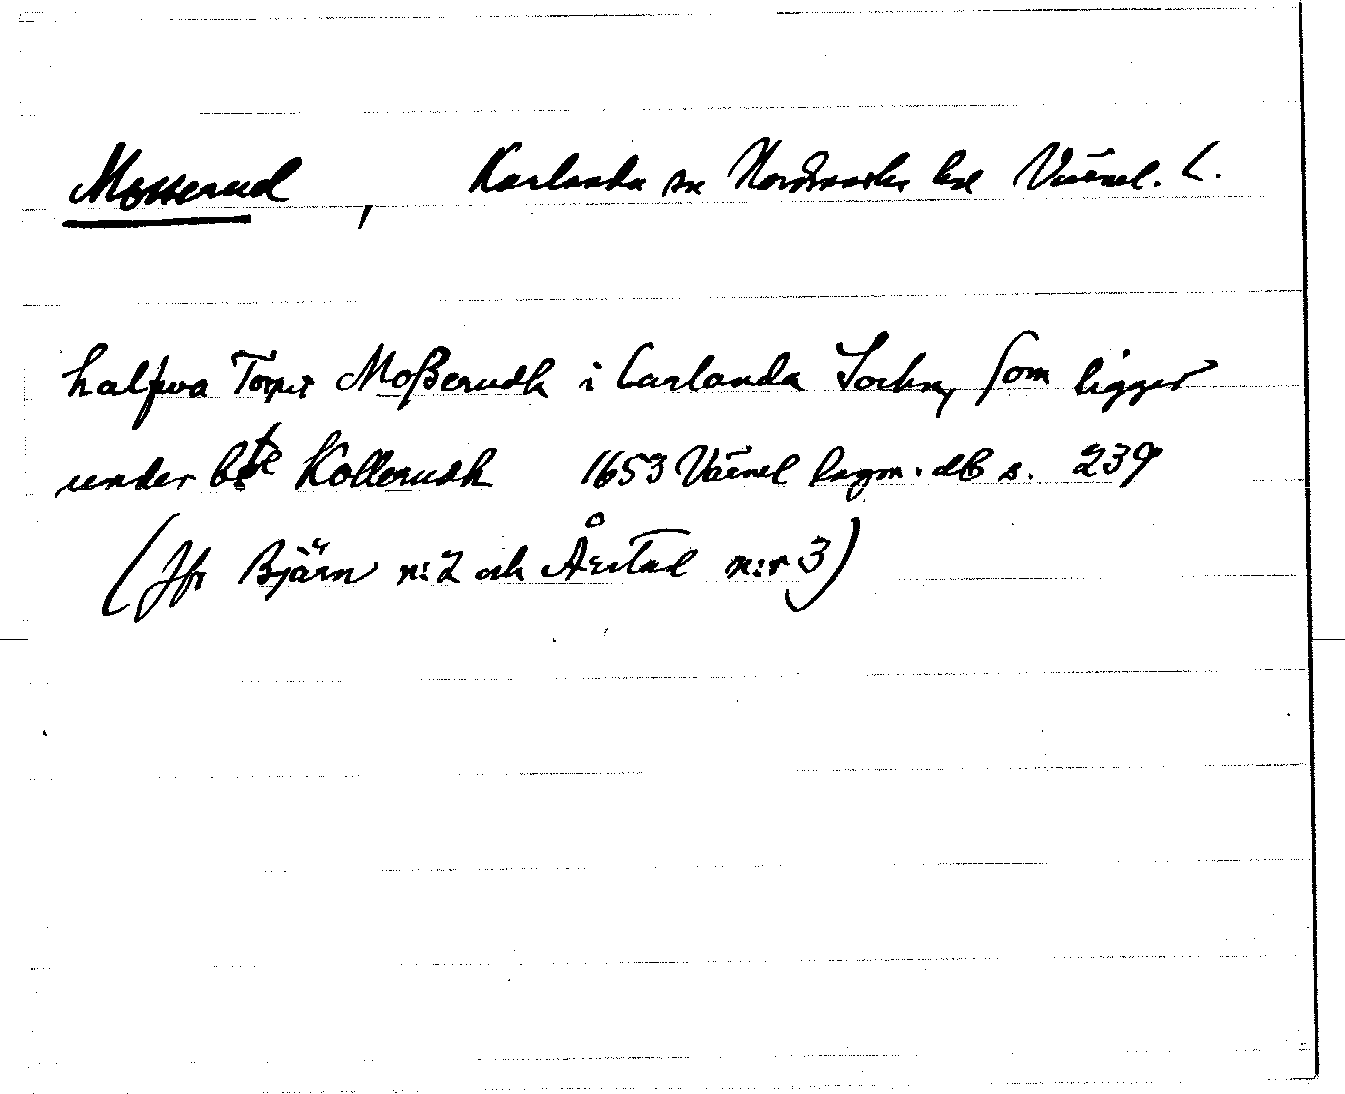 Mosserud, Karlanda sn Nordmarks hd Värml. L.
halfwa Torpet Moßerudh i Carlanda Sochn, som ligger
under b:te Kollerudh 1653 Värml lagm. db s. 239
(Jfr Björn n:2 och Årstad n:r 3)